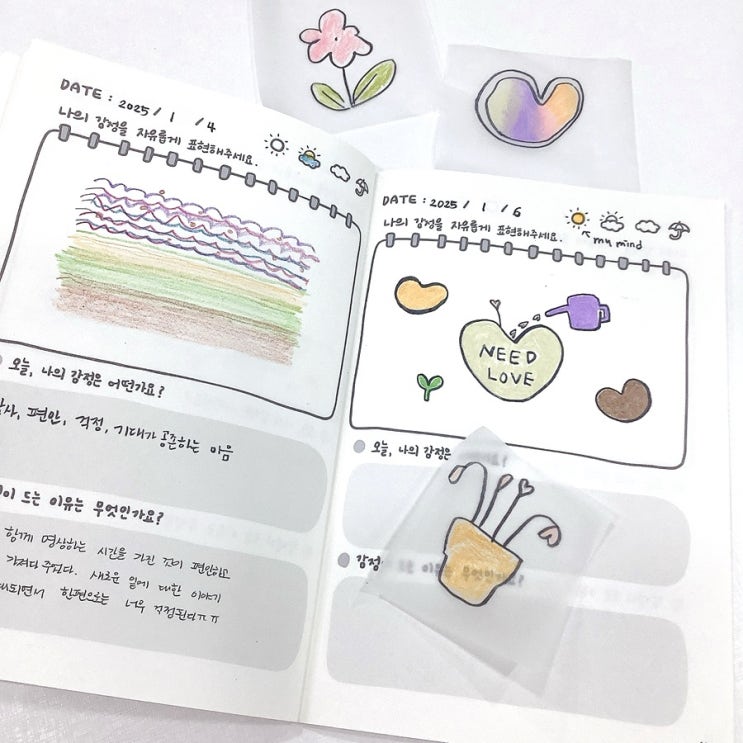 DATE : 2025 / 1 / 4
나의 감정을 자유롭게 표현해주세요.
오늘, 나의 감정은 어떤가요?
편안, 걱정, 기대가 공존하는 마음
드는 이유는 무엇인가요?
함께 명상하는 시간을 가진 것이 편안하고
가져다 주었다. 새로운 일에 대한 이야기
한편으로는 너무 걱정된다ㅠㅠ
DATE : 2025 / 1 / 6
나의 감정을 자유롭게 표현해주세요.
my mind
NEED
LOVE
오늘, 나의 감정은
이유는 무엇인가요?